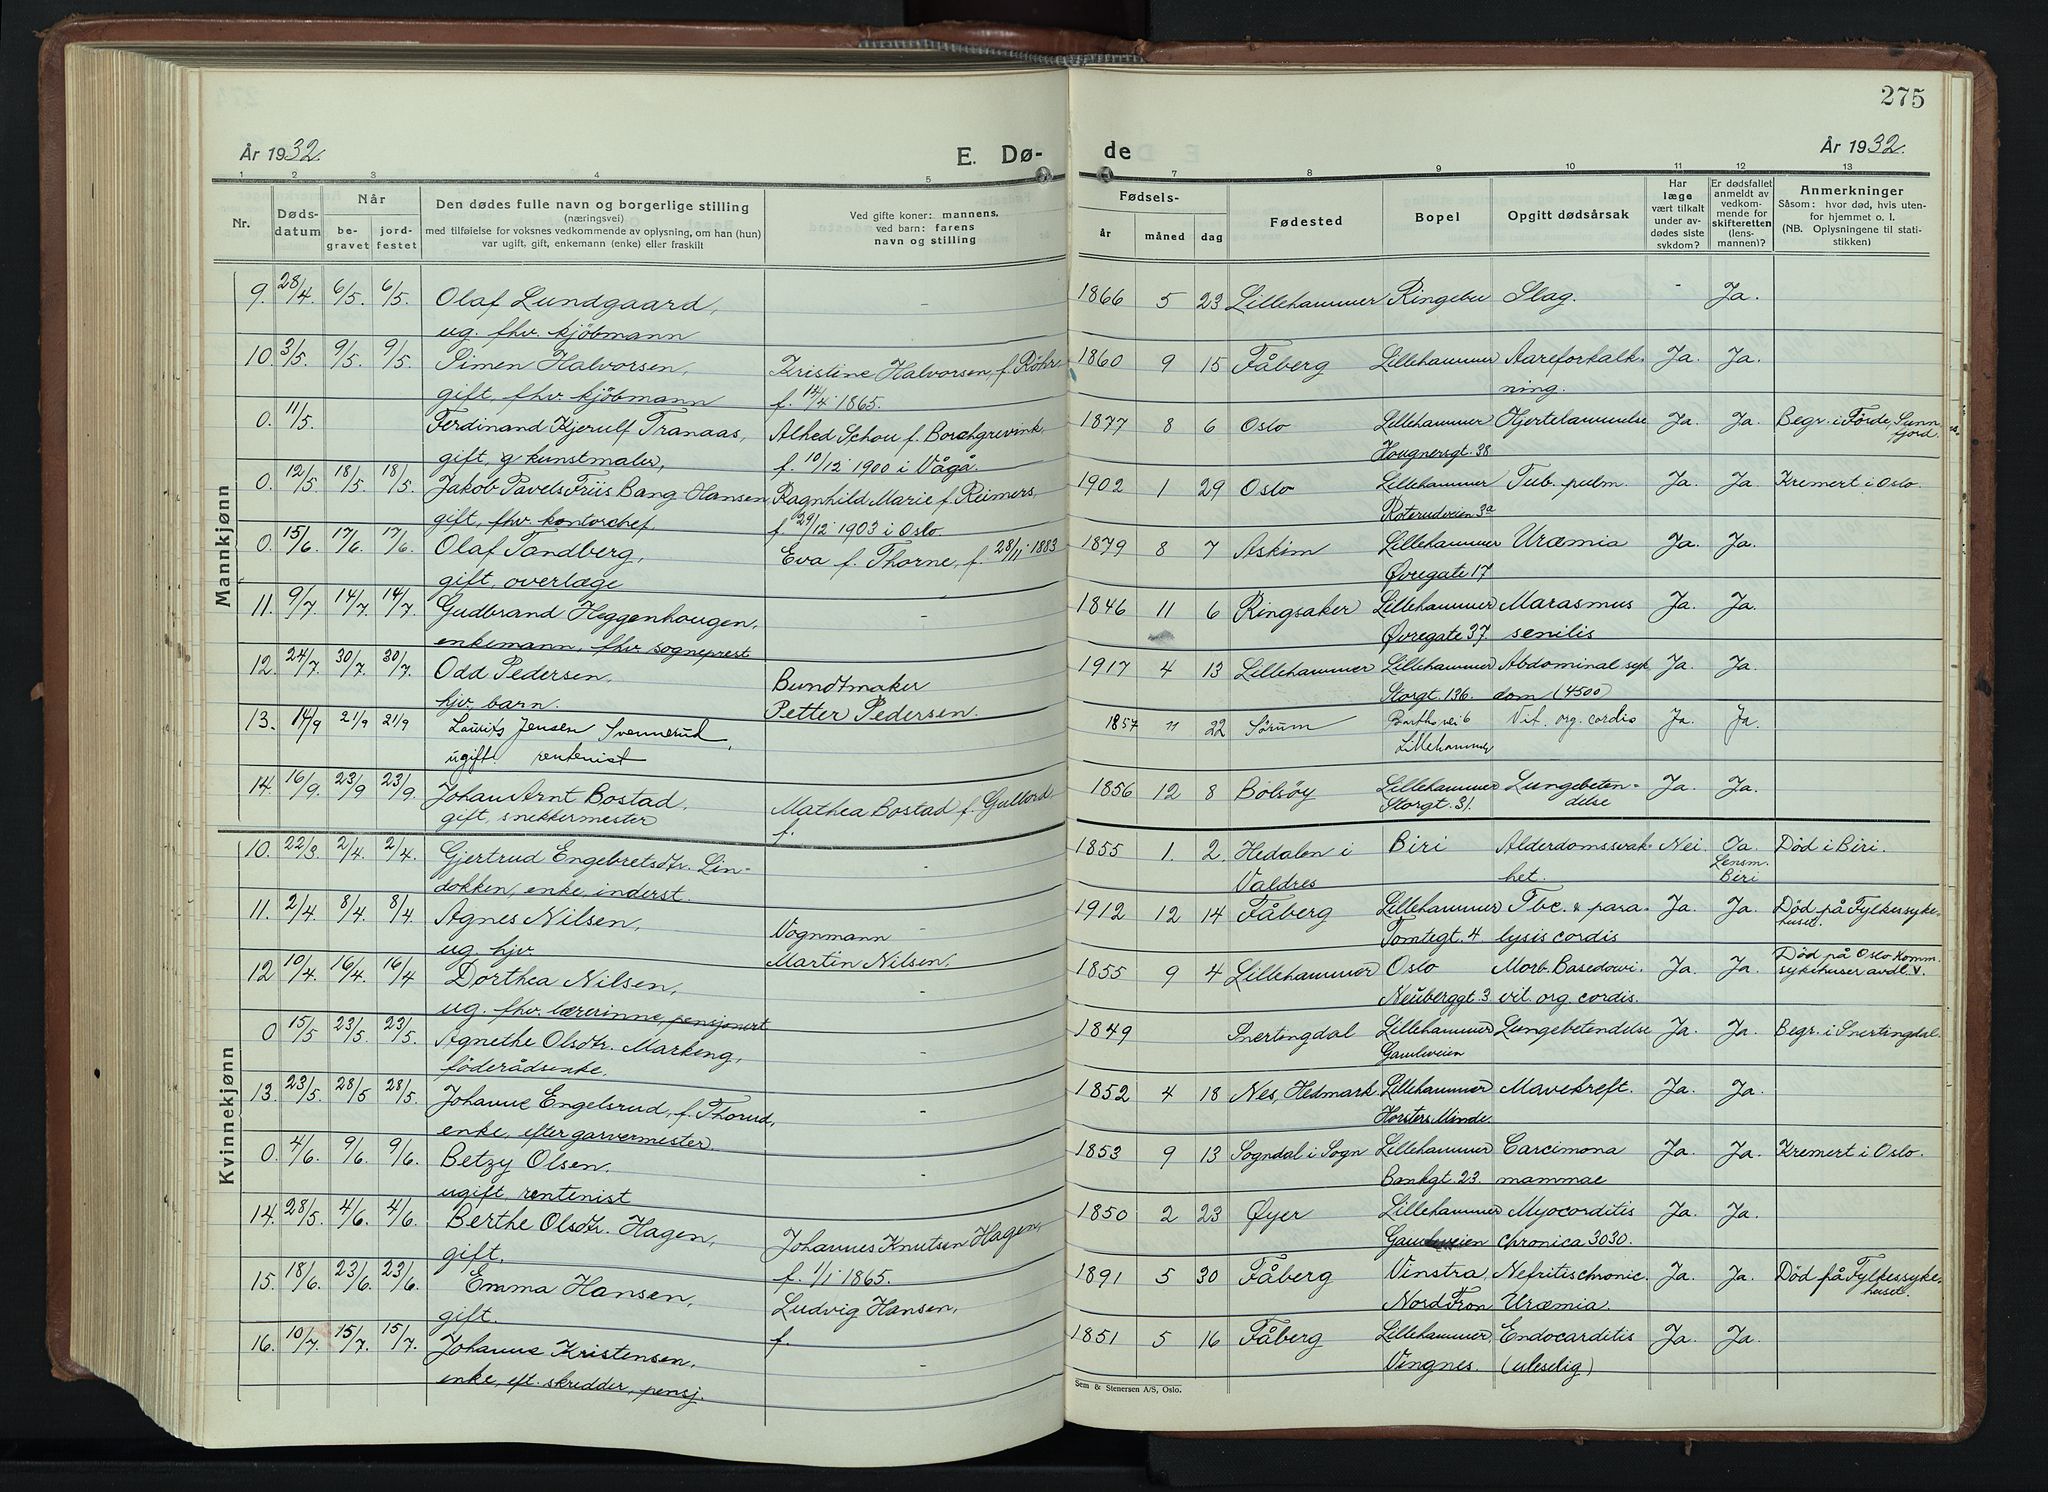 275
År 1932.
E. Dø-
de
År 1932.
1 2 3 4 5 7 8 9 10 11 12 13
Nr.
Døds-
datum
Når
be-
gravet
jord-
festet
Den dødes fulle navn og borgerlige stilling
(næringsvei)
med tilføielse for voksnes vedkommende av oplysning, om han (hun)
var ugift, gift, enkemann (enke) eller fraskilt
Ved gifte koner: mannens,
ved barn: farens
navn og stilling
Fødsels-
år måned dag
Fødested
Bopel
Opgitt dødsårsak
Har
læge
vært tilkalt
under av-
dødes siste
sykdom?
Er dødsfallet
anmeldt av
vedkom-
mende for
skifteretten
(lens-
mannen)?
Anmerkninger
Såsom: hvor død, hvis uten-
for hjemmet o. l.
(NB. Oplysningene til stati-
stikken)
Mannkjønn
9. 28/4. 6/5. 6/5. Olaf Lundgaard, - 1866 5 23 Lillehammer Ringebu Slag. - Ja.
ug. fhv. kjöbmann
10. 3/5. 9/5. 9/5. Simen Halvorsen, Kristine Halvorsen, f. Röhr, 1860 9 15 Fåberg Lillehammer Aareforkalk- Ja. Ja.
gift, fhv. kjöbmann f. 14/4 1865. ning.
0. 11/5. Ferdinand Kjerulf Tranaas, Alhed Schou f. Borchgrevink, 1877 8 6 Oslo Lillehammer Hjertelammelse Ja. Ja. Begr. i Förde, Sunn-
fjord.
gift, kunstmaler, f. 10/12 1900 i Vågå. Hougnersgt. 38
0. 12/5. 18/5. 18/5. Jakob Pavels Friis Bang Hansen Ragnhild Marie f. Reimers, 1902 1 29 Oslo Lillehammer Tub. pulm. Ja. Ja. Kremert i Oslo.
gift, fhv. kontorchef f. 29/12 1903 i Oslo. Roterudveien 3a
0. 15/6. 17/6. 17/6. Olaf Tandberg, Eva f. Thorne, f. 28/11 1883 1879 8 7 Askim Lillehammer Uræmia Ja. Ja.
gift, overlæge Øvregate 17
11. 9/7. 14/7. 14/7. Gudbrand Heggenhougen, - 1846 11 6 Ringsaker Lillehammer Marasmus Ja. Ja.
enkemann, fhv. sogneprest Øvregate 37. senilis
12. 24/7. 30/7. 30/7. Odd Pedersen, Bundtmaker 1917 4 13 Lillehammer Lillehammer Abdominal syk Ja. Ja.
hjv. barn. Petter Pedersen. Storgt. 136. dom (4500)
13. 14/9 21/9 21/9 Laurits Jensen Svennerud, 1857 11 22 Sörum Barthsvei 6 Vit. org. cordis Ja. Ja.
ugift. rentenist Lillehammer
14. 16/9. 23/9 23/9 Johan Arnt Bostad, Mathea Bostad f. Gullord, 1856 12 8 Bolsöy Lillehammer Lungebeten- Ja. Ja.
gift, snekkermester f. Storgt. 31. delse
Kvinnekjønn
10. 22/3. 2/4. 2/4. Gjertrud Engebretsdtr. Lin- - 1855 1. 2. Hedalen i Biri Alderdomssvak- Nei Oa. Död i Biri.
Lensm.
Biri
dokken, enke, inderst. Valdres het.
11. 2/4. 8/4. 8/4. Agnes Nilsen, Vognmann 1912 12 14 Fåberg Lillehammer Tbc. & para- Ja. Ja. Död på Fylkessyke-
huset.
ug. hjv. Martin Nilsen. Tomtegt. 4 lysis cordis
12 10/4. 16/4. 16/4 Dorthea Nilsen, - 1855 9 4 Lillehammer Oslo Morb. Basedowi. Ja. Ja. Död på Oslo Komm.
sykehuser avdl. V.
ug. fhv. lærerinne, pensjonert Neuberggt. 3 vit. org. cordis.
0 15/5 23/5. 23/5. Agnethe Olsdtr. Markeng, - 1849 Snertingdal Lillehammer Lungebetendelse Ja. Ja. Begr. i Snertingdal.
föderådsenke. Gamleveien
13. 23/5. 28/5 28/5. Johanne Engelsrud, f. Thorud, - 1852 4 18 Nes, Hedmark Lillehammer Mavekreft. Ja. Ja.
enke, efter garvermester. Horsters Minde.
0. 4/6. 9/6. 9/6. Betzy Olsen. - 1853 9 13 Sogndal i Sogn Lillehammer Carcimona Ja. Ja. Kremert i Oslo.
ugift, rentenist Bankgt. 23. mammae
14. 28/5. 4/6. 4/6. Berthe Olsdtr. Hagen, Johannes Knutsen Hagen, 1850 2 23 Øyer Lillehammer Myocorditis Ja. Ja.
gift, f. 1/1 1865. Gamleveien chronica 3030.
15. 18/6. 23/6. 23/6. Emma Hansen, Ludvig Hansen, 1891 5 30 Fåberg Vinstra, Nefritis chronic. Ja. Ja. Död på Fylkessyke-
huset.
gift. f. Nord Fron Uræmia.
16. 10/7. 15/7. 15/7. Johanne Kristensen, - 1851 5 16 Fåberg Lillehammer, Endocarditis Ja. Ja.
enke, eft. skredder, pensj. Vingnes. (uleselig)
Sem & Stenersen A/S, Oslo.